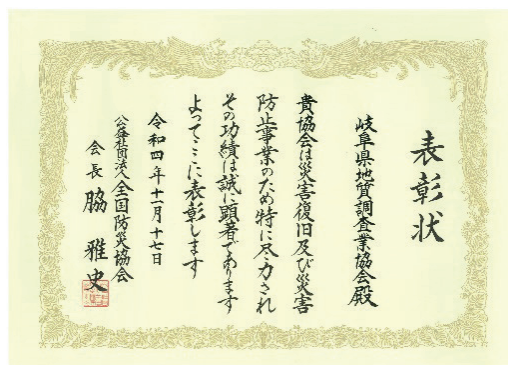 表彰状
岐阜県地質調査業協会殿
貴協会は災害復旧及び災害
防止事業のため特に尽力され
その功績は誠に顕著であります
よってここに表彰します
令和四年十一月十七日
公益社団法人全国防災協会
会長 脇 雅史